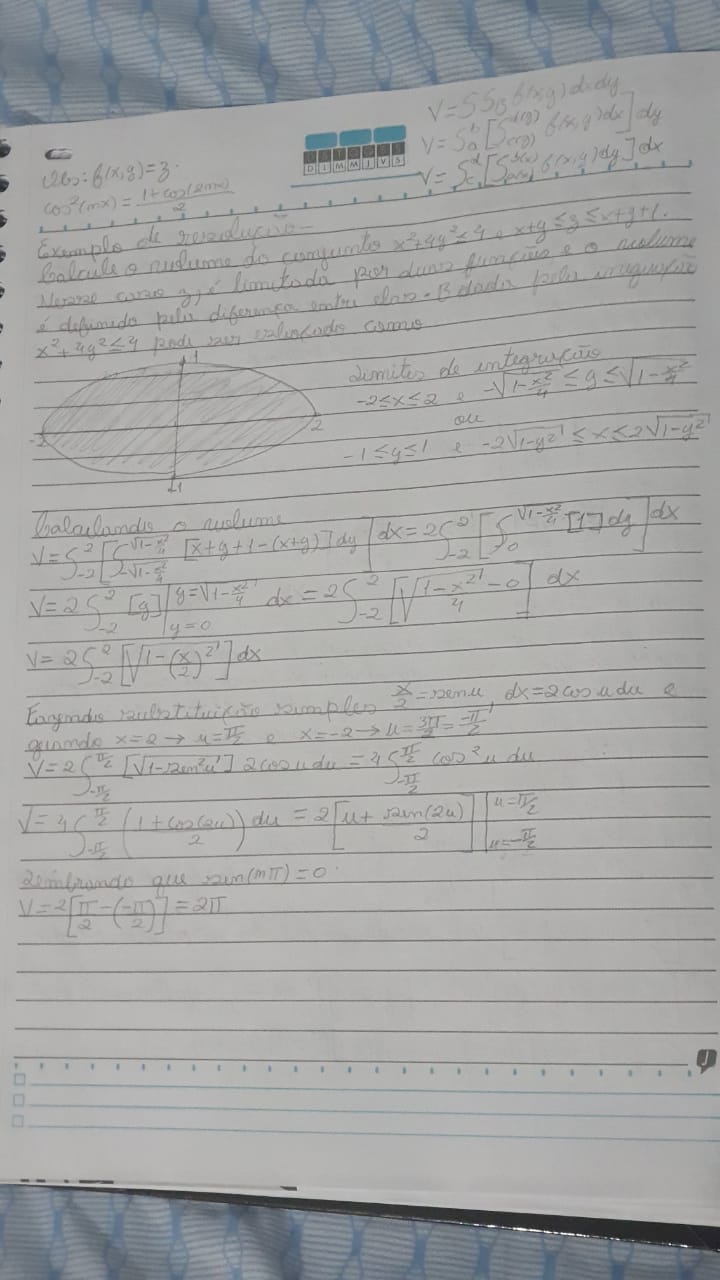 V=∫∫_B f(x,y)dxdy
V=∫_a^b[∫_{c(y)}^{d(y)} f(x,y)dx]dy
V=∫_c^d[∫_{a(x)}^{b(x)} f(x,y)dy]dx
D I M M J V S
Obs: f(x,y)=z.
cos²(mx)=1+cos(2mx)/2
Exemplo de resolução-
Calcule o volume do conjunto x²+4y²≤4 e x+y≤z≤x+y+1.
Nesse caso z, é limitada por duas funções e o volume
é definido pela diferença entre elas. B dada pela inequação
x²+4y²≤4 pode ser esboçado como
1
-2
2
-1
Limites de integração
-2≤x≤2 e -√(1-x²/4)≤y≤√(1-x²/4)
ou
-1≤y≤1 e -2√(1-y²)≤x≤2√(1-y²)
Calculando o volume
V=∫_{-2}^{2}[∫_{-√(1-x²/4)}^{√(1-x²/4)}[x+y+1-(x+y)]dy]dx=2∫_{-2}^{2}[∫_0^{√(1-x²/4)}[1]dy]dx
V=2∫_{-2}^{2}[y]|_{y=0}^{y=√(1-x²/4)} dx=2∫_{-2}^{2}[√(1-x²/4)-0]dx
V=2∫_{-2}^{2}[√(1-(x/2)²)]dx
Fazendo substituição simples x/2=senu, dx=2cosudu e
quando x=2→u=π/2 e x=-2→u=3π/2=-π/2
V=2∫_{-π/2}^{π/2}[√(1-sen²u)]2cosudu=4∫_{-π/2}^{π/2}cos²u du
V=4∫_{-π/2}^{π/2}(1+cos(2u)/2)du=2[u+sen(2u)/2]|_{u=-π/2}^{u=π/2}
Lembrando que sin(mπ)=0
V=2[π/2-(-π/2)]=2π